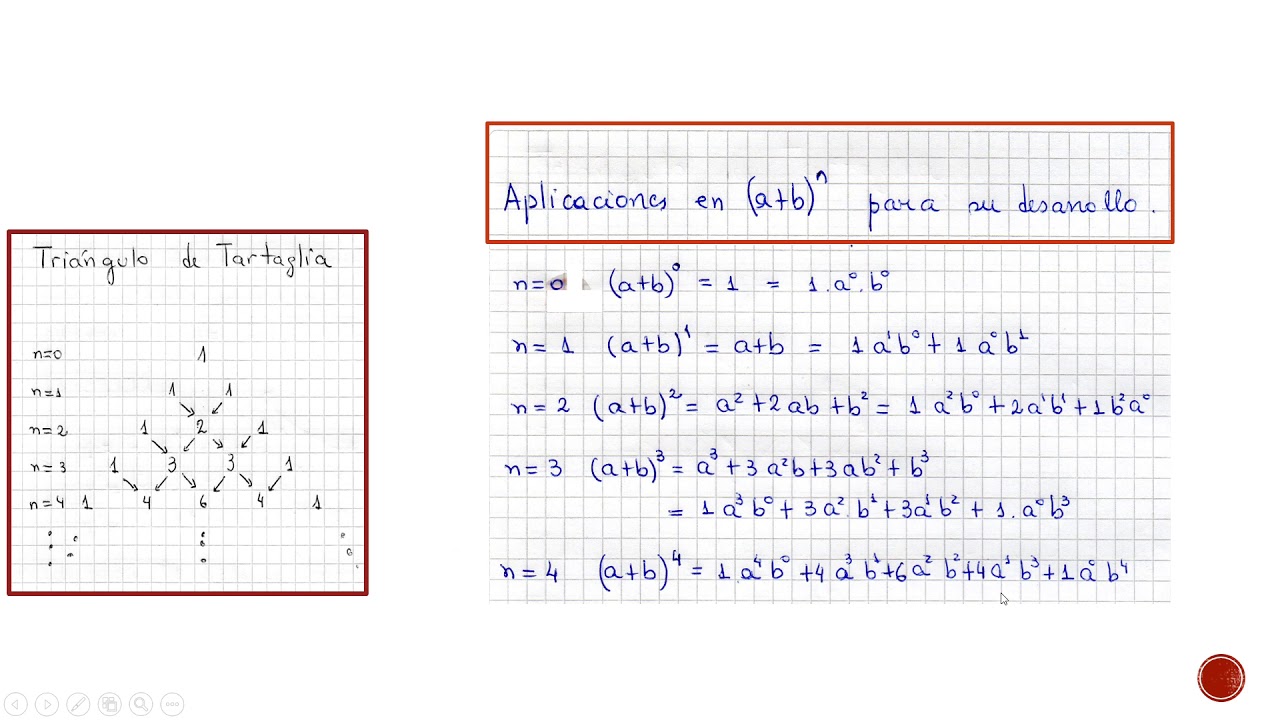 Triángulo de Tartaglia
n=0 1
n=1 1 1
n=2 1 2 1
n=3 1 3 3 1
n=4 1 4 6 4 1
Aplicaciones en (a+b)ⁿ para su desarrollo.
n=0 (a+b)⁰ = 1 = 1.a⁰.b⁰
n=1 (a+b)¹ = a+b = 1 a¹b⁰ + 1 a⁰b¹
n=2 (a+b)² = a² + 2ab + b² = 1 a²b⁰ + 2a¹b¹ + 1b²a⁰
n=3 (a+b)³ = a³ + 3a²b + 3ab² + b³
= 1 a³b⁰ + 3a².b¹ + 3a¹b² + 1.a⁰b³
n=4 (a+b)⁴ = 1.a⁴b⁰ + 4a³b¹ + 6a²b² + 4a¹b³ + 1a⁰b⁴